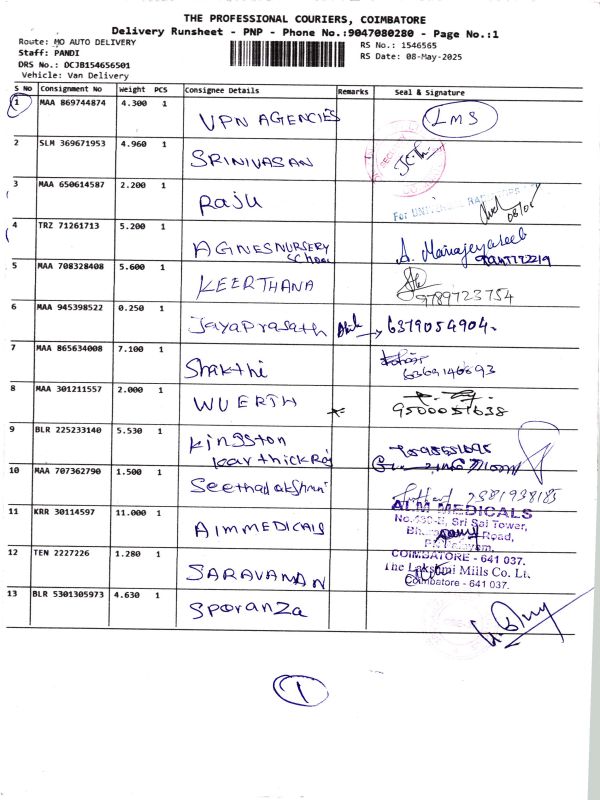 THE PROFESSIONAL COURIERS, COIMBATORE
Delivery Runsheet - PNP - Phone No.:9047080280 - Page No.:1
Route: MO AUTO DELIVERY
Staff: PANDI
DRS No.: DCJB154656501
Vehicle: Van Delivery
RS No.: 1546565
RS Date: 08-May-2025
S No Consignment No Weight PCS Consignee Details Remarks Seal & Signature
1 MAA 869744874 4.300 1 VPN AGENCIES LMS
2 SLM 369671953 4.960 1 SRINIVASAN
3 MAA 650614587 2.200 1 RAJU
For
08/05
4 TRZ 71261713 5.200 1 AGNES NURSERY
School
5 MAA 708328408 5.600 1 KEERTHANA
9789723754
6 MAA 945398522 0.250 1 Jayaprasath 6379054904.
7 MAA 865634008 7.100 1 Shakthi
6369146893
8 MAA 301211557 2.000 1 WUERTH
9500051638
9 BLR 225233140 5.530 1 Kingston
10 MAA 707362790 1.500 1
11 KRR 30114597 11.000 1 AIMMEDICALS
MEDICALS
Sri Sai Tower,
Road,
COIMBATORE - 641 037.
12 TEN 2227226 1.280 1 SARAVANAN
The Lakshmi Mills Co. Lt.
Coimbatore - 641 037.
13 BLR 5301305973 4.630 1 Sporanza
1